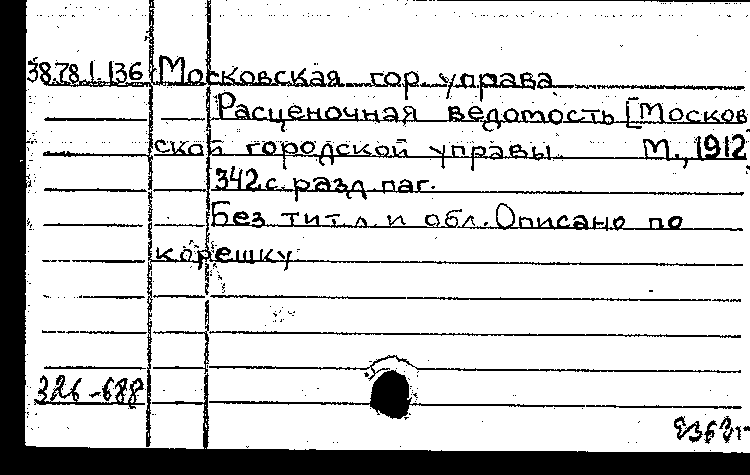 38.78.1.136 Московская гор. управа
Расценочная ведомость [Москов
ской городской управы. М., 1912
342 с. разд. паг.
Без тит. л. и обл. Описано по
корешку
326-688